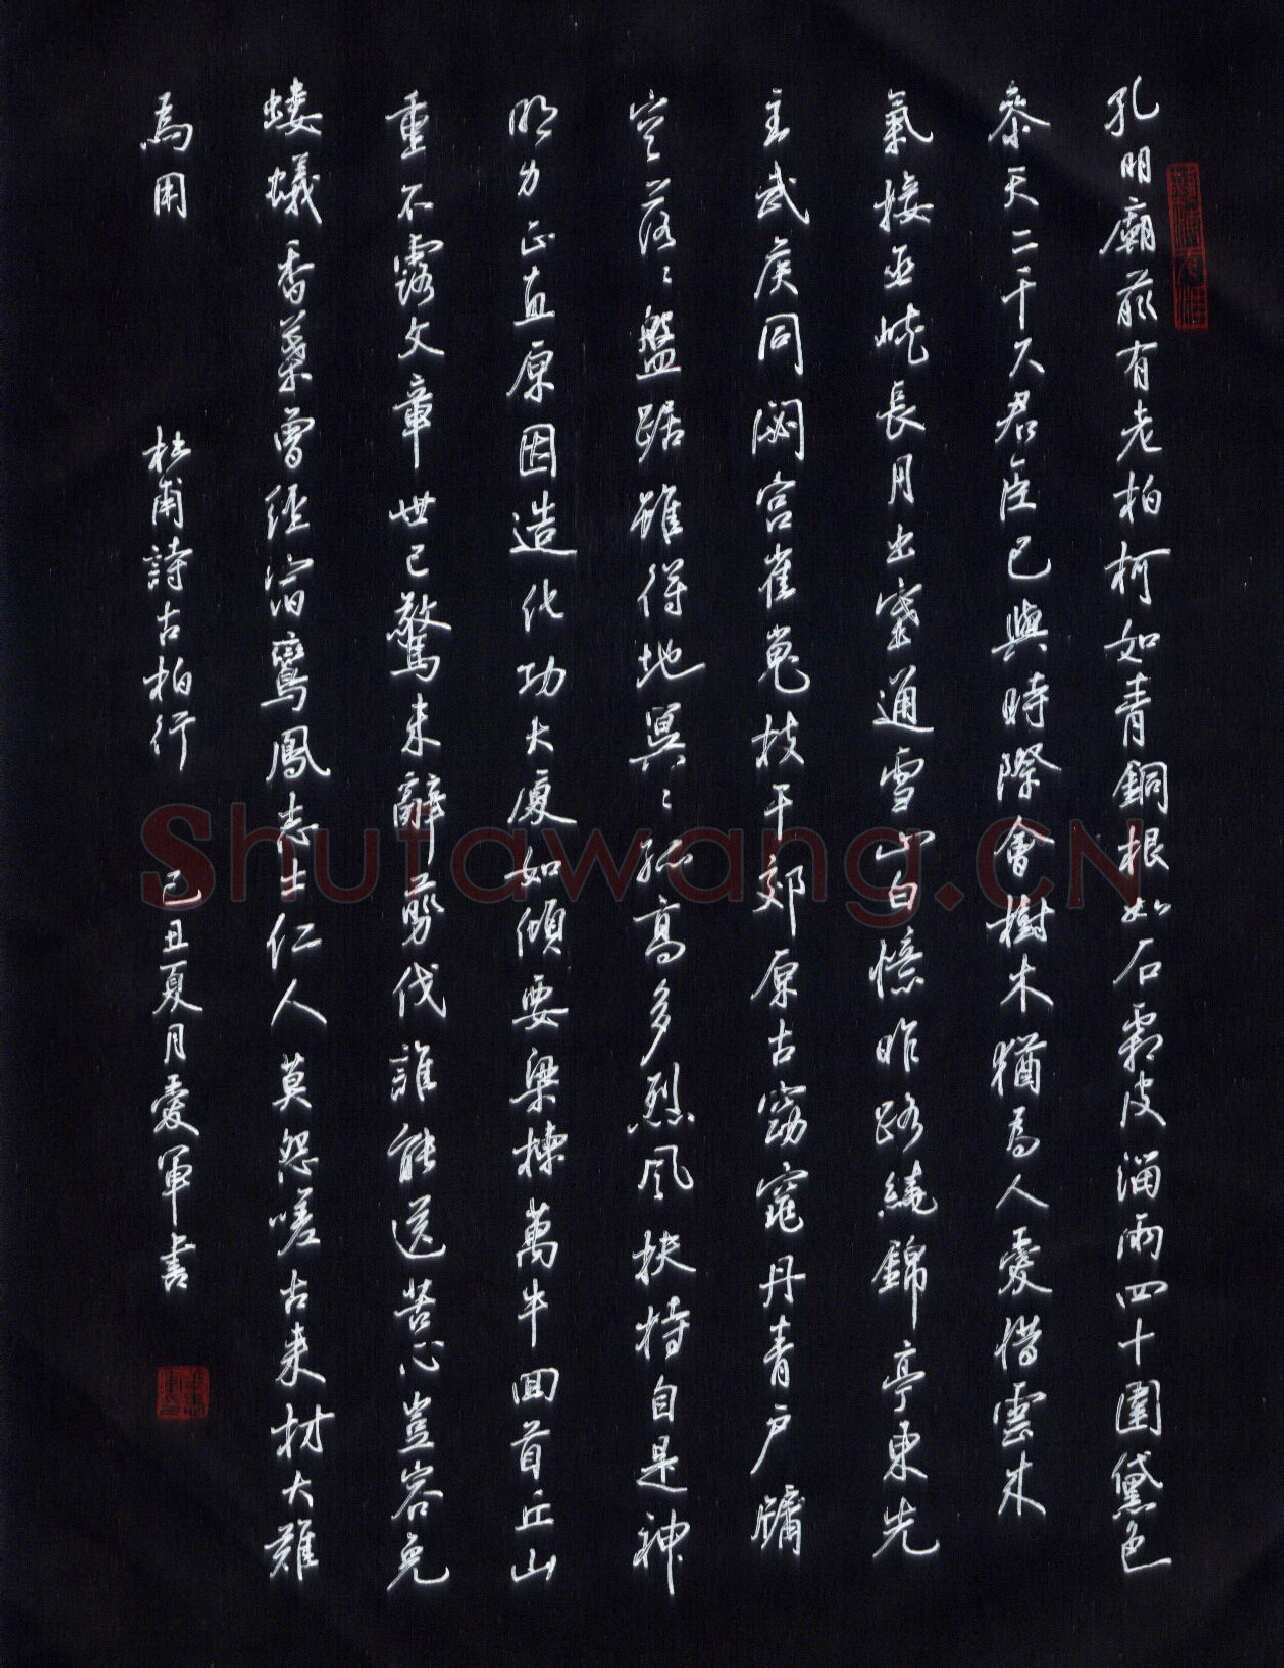 孔明廟前有老柏柯如青銅根如石霜皮溜雨四十圍黛色
參天二千尺君臣已與時際會樹木猶為人愛惜雲木
氣接巫峽長月出寒通雪山白憶昨路繞錦亭東先
主武侯同閟宮崔嵬枝干郊原古窈窕丹青戶牖
空落々盤踞雖得地冥々孤高多烈風扶持自是神
明力正直原因造化功大廈如傾要梁棟萬牛回首丘山
重不露文章世已驚未辭剪伐誰能送苦心豈容免
螻蟻香葉曾經宿鸞鳳志士仁人莫怨嗟古来材大難
為用 杜甫詩古柏行 己丑夏月愛軍書
Shufawang.CN